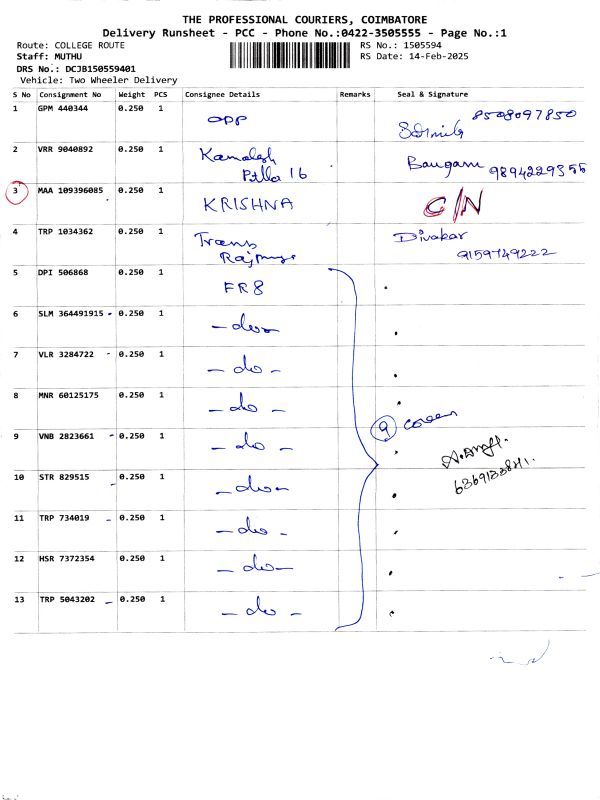 THE PROFESSIONAL COURIERS, COIMBATORE
Delivery Runsheet - PCC - Phone No.:0422-3505555 - Page No.:1
Route: COLLEGE ROUTE RS No.: 1505594
Staff: MUTHU RS Date: 14-Feb-2025
DRS No.: DCJB150559401
Vehicle: Two Wheeler Delivery
S No Consignment No Weight PCS Consignee Details Remarks Seal & Signature
1 GPM 440344 0.250 1 OPP 8508097850
2 VRR 9040892 0.250 1 Kamalesh 9894229356
16
3 MAA 109396085 0.250 1 KRISHNA C/N
4 TRP 1034362 0.250 1 Trans Divakar
9159749222
5 DPI 506868 0.250 1 FR8
6 SLM 364491915 - 0.250 1 - do -
7 VLR 3284722 - 0.250 1 - do -
8 MNR 60125175 0.250 1 - do -
9
9 VNB 2823661 - 0.250 1 - do -
10 STR 829515 - 0.250 1 - do -
11 TRP 734019 - 0.250 1 - do -
12 HSR 7372354 0.250 1 - do -
13 TRP 5043202 - 0.250 1 - do -